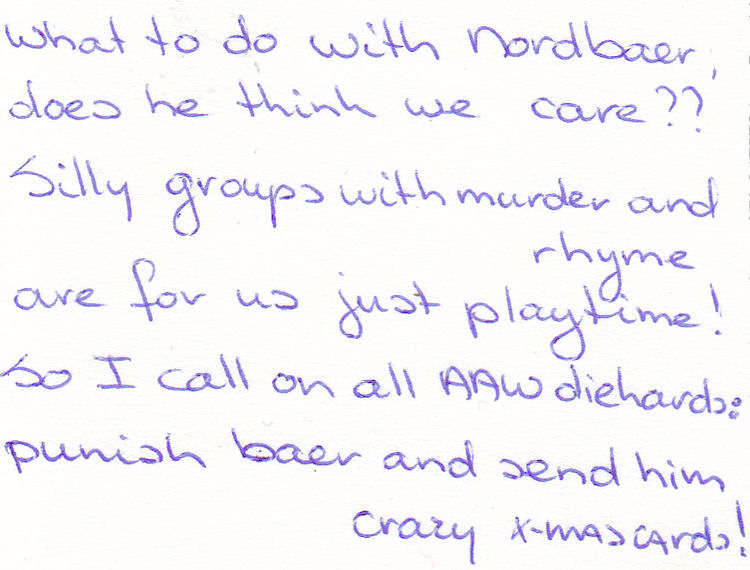 What to do with Nordbaer,
does he think we care??
Silly groups with murder and
rhyme
are for us just playtime!
So I call on all AAW diehards:
punish baer and send him
crazy X-MAS CARds!